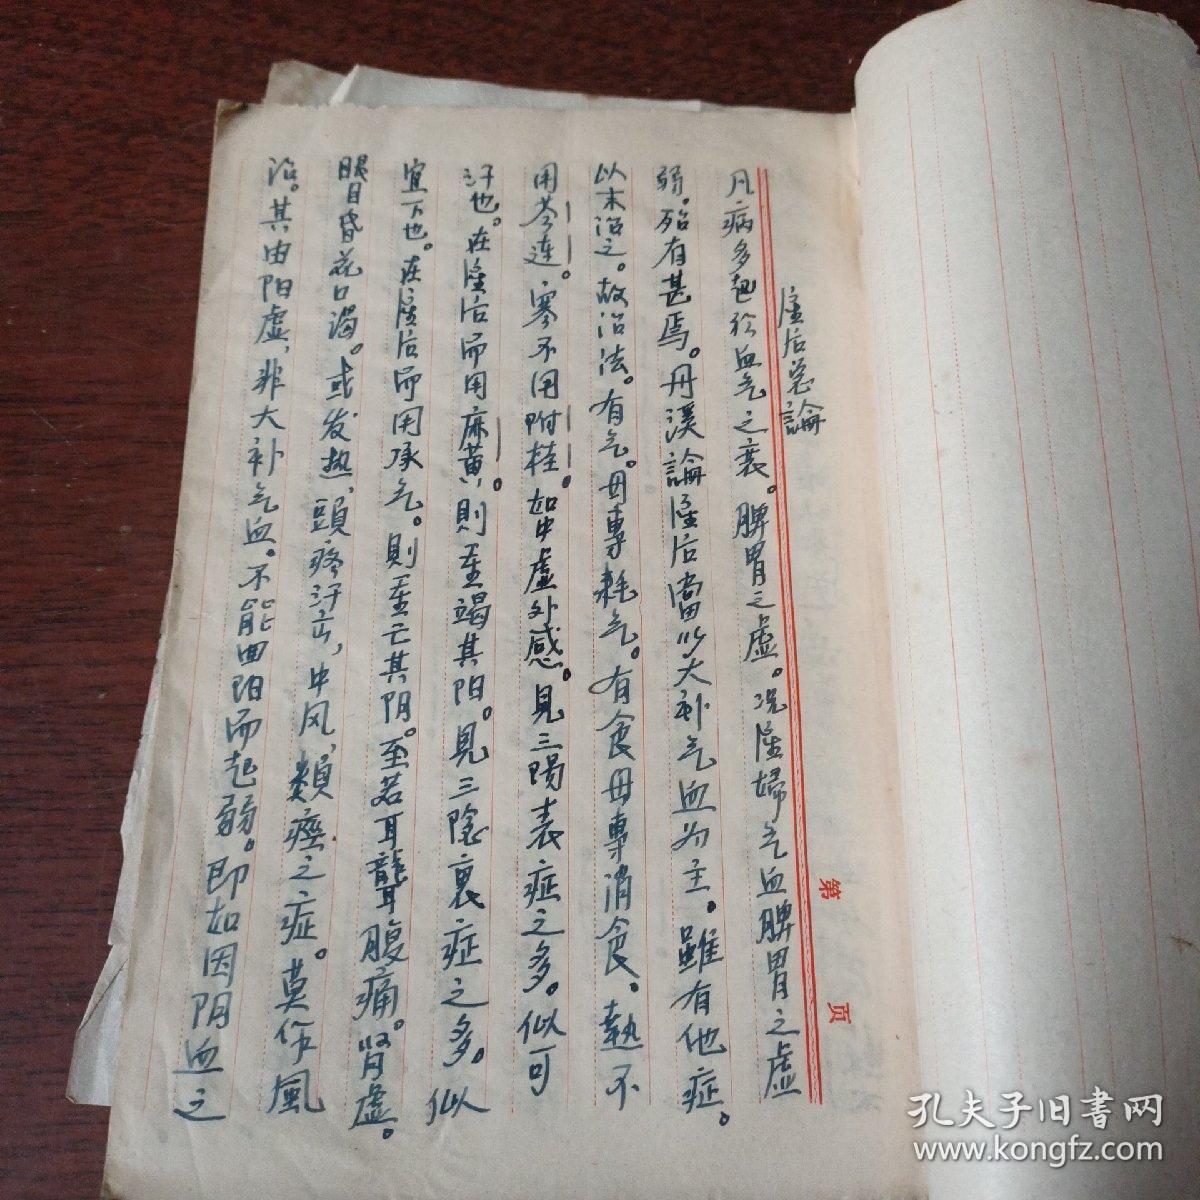 产后总論
凡病多起於血气之衰。脾胃之虚。况产婦气血脾胃之虚
弱。殆有甚焉。丹溪論产后當以大补气血为主。雖有他症。
以末治之。故治法。有气。毋專耗气。有食毋專消食。热不
用芩连。寒不用附桂。如中虚外感。見三陽表症之多。似可
汗也。在产后而用麻黄。則重竭其阳。見三陰裏症之多。似
宜下也。在产后而用承气。則重亡其阴。至若耳聾腹痛。肾虚。
眼目昏花口渴。或发热，頭疼汗亡，中风，類痙之症。莫作風
治。其由阳虚，非大补气血。不能回阳而起弱。即如因阴血之
第 页
孔夫子旧书网
www.kongfz.com